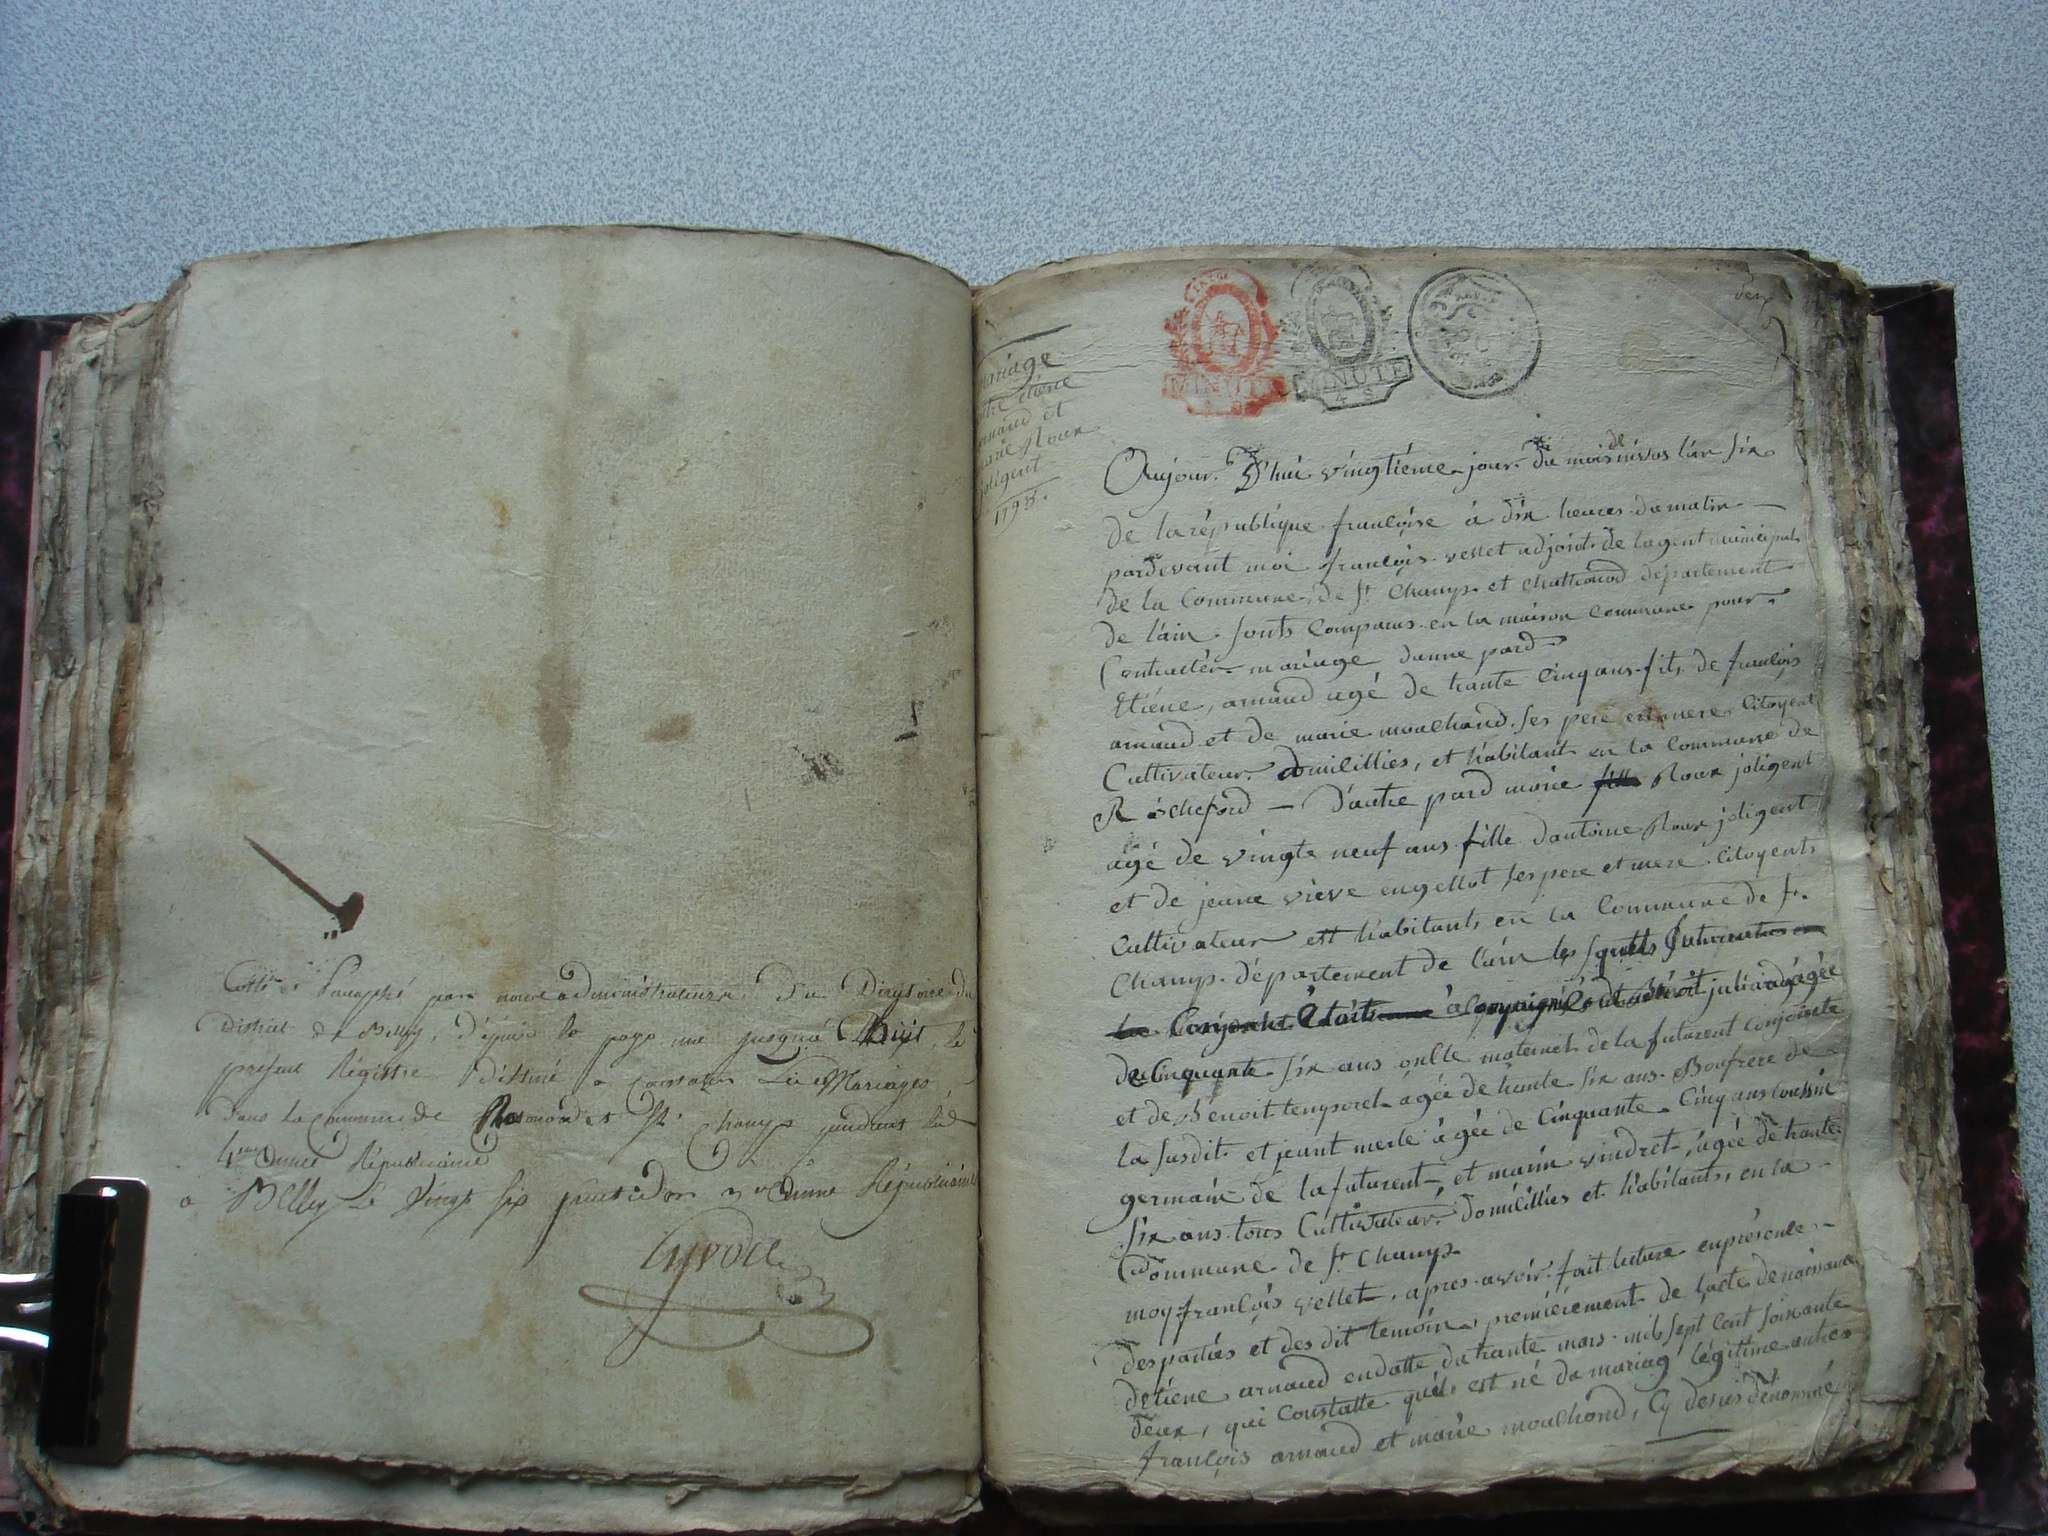 Cotté et Paraphé par nous administrateur du Directoire du
District de Belley, depuis la page une jusqu'à Huit, le
présent Régistre destiné a constater les Mariages
dans la Commune de et St Champ pendant
4me année Républicaine
a Belley Le Vingt six fructidor année Républicaine
mariage
entre étiéne
arnaud et
marie Roux
joligent
1798.
MINUTE
MINUTE
4 S
Aujour d'hui vingtiéme jour du mois de nivos l'an six
de la république françoise à dix heures du matin
pardevant moi françois vellet adjoint de lagent municipal
de la Commune de St Champ et Chattonod département
de l'ain sonts Comparus en la maison Commune pour
Contractér mariage dunne pard
Etiéne arnaud agé de trante Cinq ans fils de françois
arnaud et de marie mouchand ses pere et mere Citoyent
Cultivateur domilillies, et habitant en la Commune de
Rocheford — D'autre pard marie fille Roux joligent
agé de vingte neuf ans fille dantoine Roux joligent
et de jeane vieve engellot ses pere et mere Citoyents
Cultivateur est habitants en la Commune de St
Champ département de l'ain les
Conjoint Etoit acompaigné de benoit juliand agée
de Cinquante six ans onlle maternel de la futurent Conjointe
et de Benoit temporel agée de trante six ans Boufrere de
la susdit et jeant merle agée de Cinquante Cinq ans coussin
germain de la futurent et marin vindret agée de trante
six ans tous Cultivateur domilillies et habitants en la
Commune de St Champ
moy françois vellet apres avoir fait lecture enprésence
des parties et des dit temoin, premiérement de lacte de naissance
detiene arnaud en datte du trante mars mil sept Cent soixante
deux, qui Constatte quil est né du mariag légitime antre
françois arnaud et marie mouchand, Cy desus dénommé